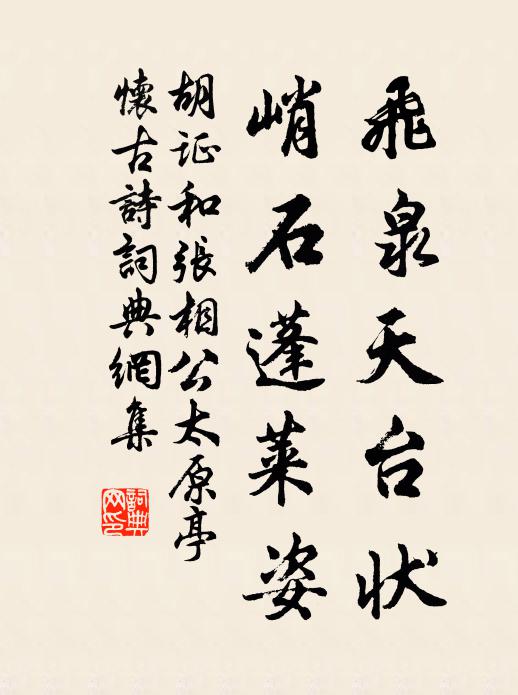 飛泉天台狀
峭石蓬萊姿
胡证和張相公太原亭
懷古詩詞典網集
詞典
网印